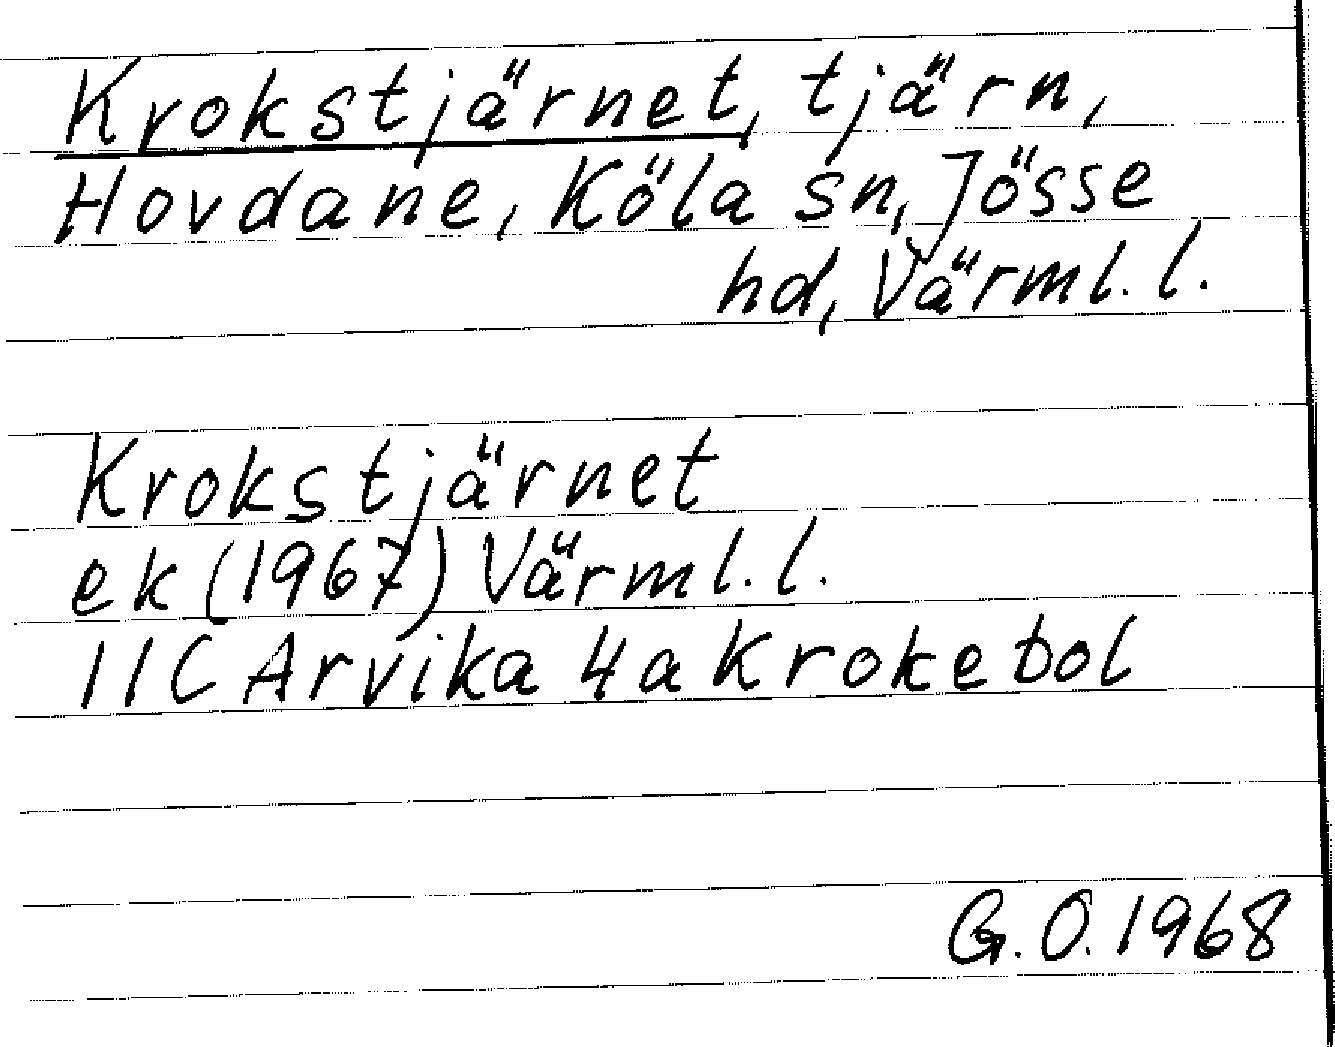 Krokstjärnet, tjärn,
Hovdane, Köla sn, Jösse
hd, Värml. l.
Krokstjärnet
ek (1967) Värml. l.
11C Arvika 4a Krokebol
G. O. 1968